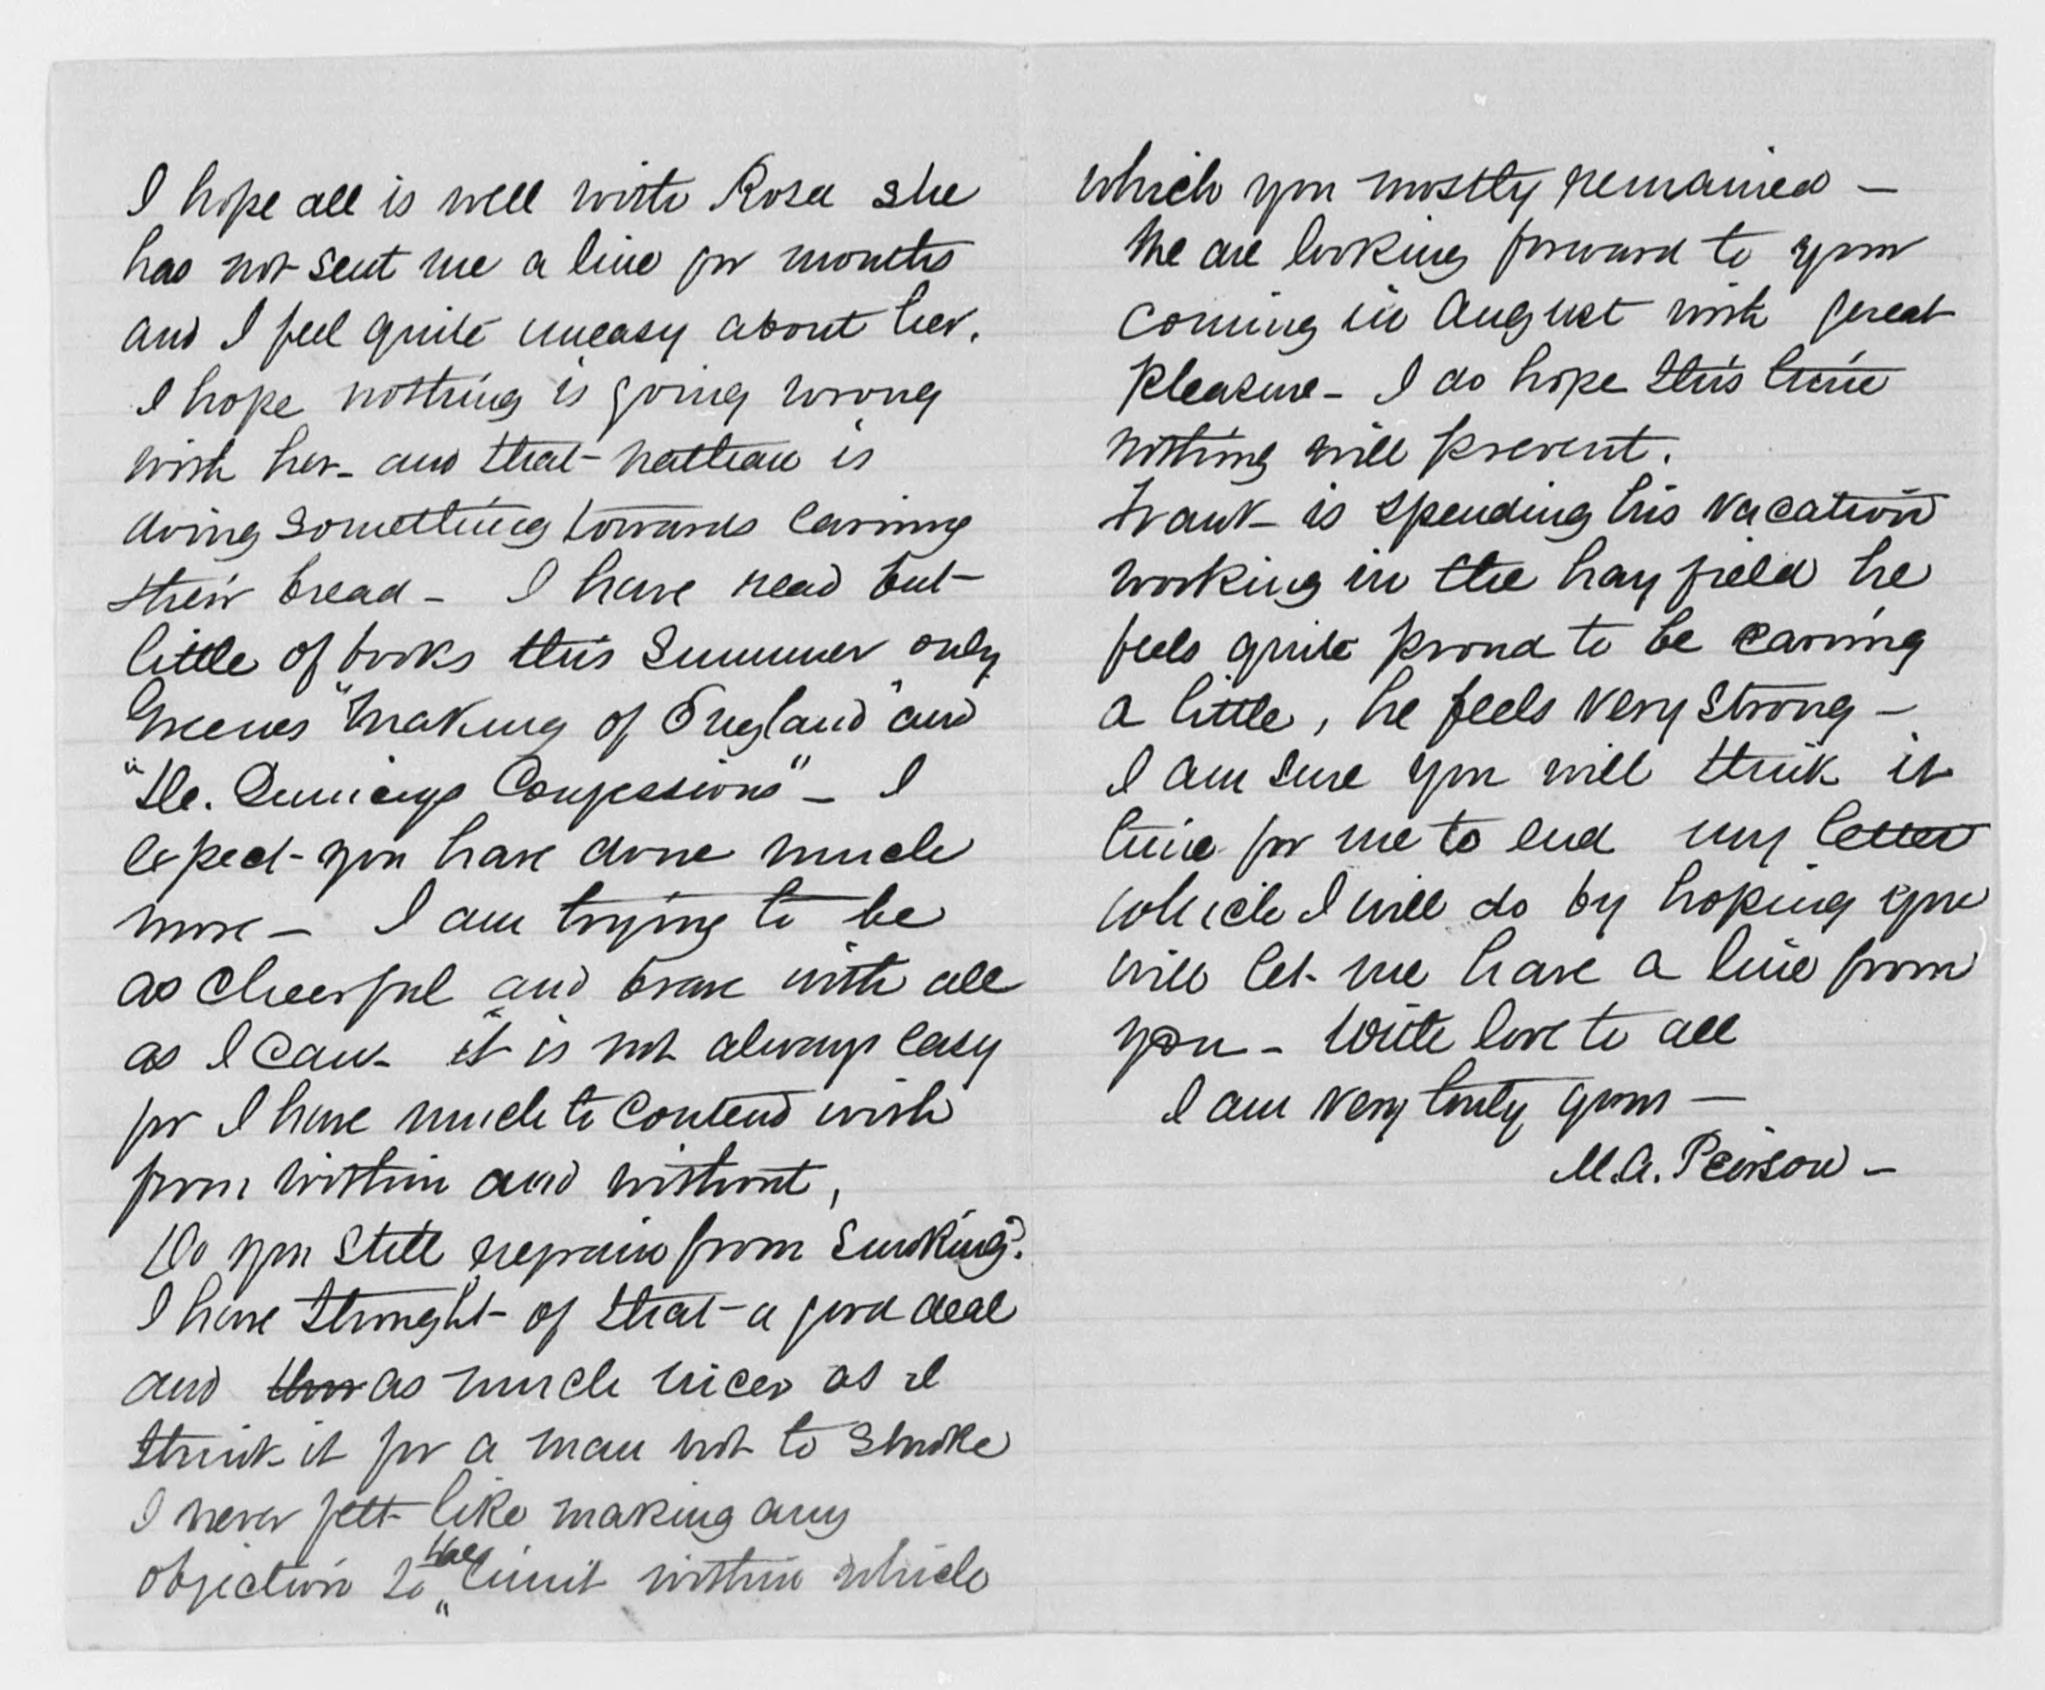 I hope all is well with Rosa she
has not sent me a line for months
and I feel quite uneasy about her.
I hope nothing is going wrong
with her - and that - Nathan is
doing something towards earning
their bread - I have read but -
little of books this summer only
Greenes "Making of England" and
"De. Quinceys Confessions" - I
expect - you have done much
more - I am trying to be
as cheerful and brave with all
as I can - it is not always easy
for I have much to contend with
from within and without,
Do you still refrain from smoking?
I have thought - of that - a good deal
and as much nicer as I
think it for a man not to smoke
I never felt like making any
objection to the limit within which
which you mostly remained -
We are looking forward to your
coming in August with great
pleasure - I do hope this time
nothing will prevent.
Frank - is spending his vacation
working in the hay field he
feels quite proud to be earning
a little, he feels very strong -
I am sure you will think it
time for me to end my letter
which I will do by hoping you
will let - me have a line from
you - With love to all
I am very truly yours -
M. A. Peirson -